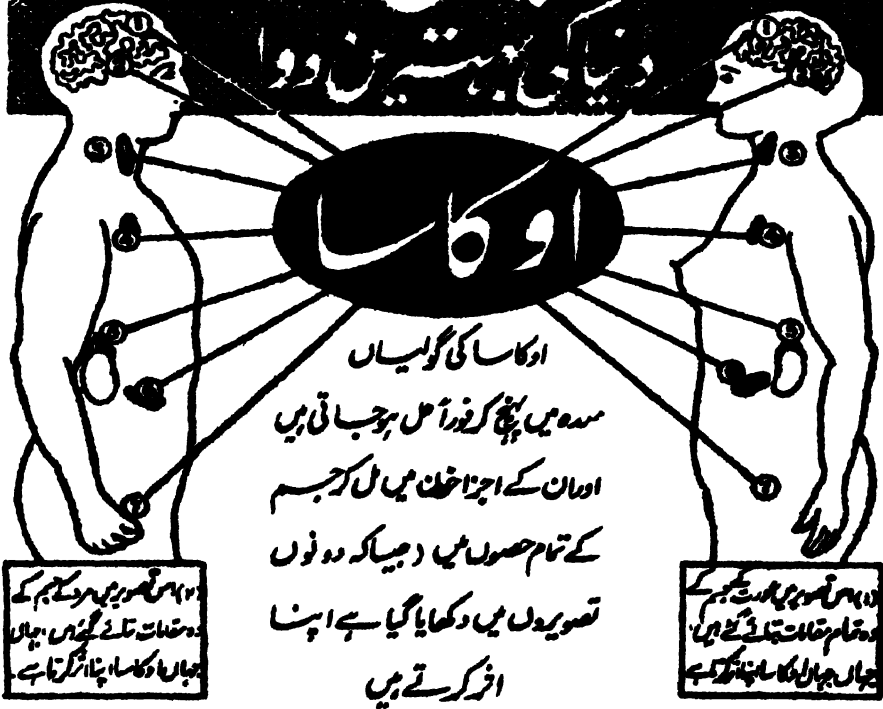 دنیا کی بہترین دوا
اوکاسا
اوکاسا کی گولیاں
معدہ میں پہنچ کر فوراً حل ہو جاتی ہیں
اور ان کے اجزا خون میں مل کر جسم
کے تمام حصوں میں (جیسا کہ دونوں
تصویروں میں دکھایا گیا ہے اپنا
اثر کرتے ہیں
(۱) اس تصویر میں عورت کے جسم کے
وہ تمام مقامات بتائے گئے ہیں،
جہاں جہاں اوکاسا اپنا اثر کرتا ہے
(۲) اس تصویر میں مرد کے جسم کے
وہ مقامات بتائے گئے ہیں، جہاں
جہاں اوکاسا اپنا اثر کرتا ہے۔